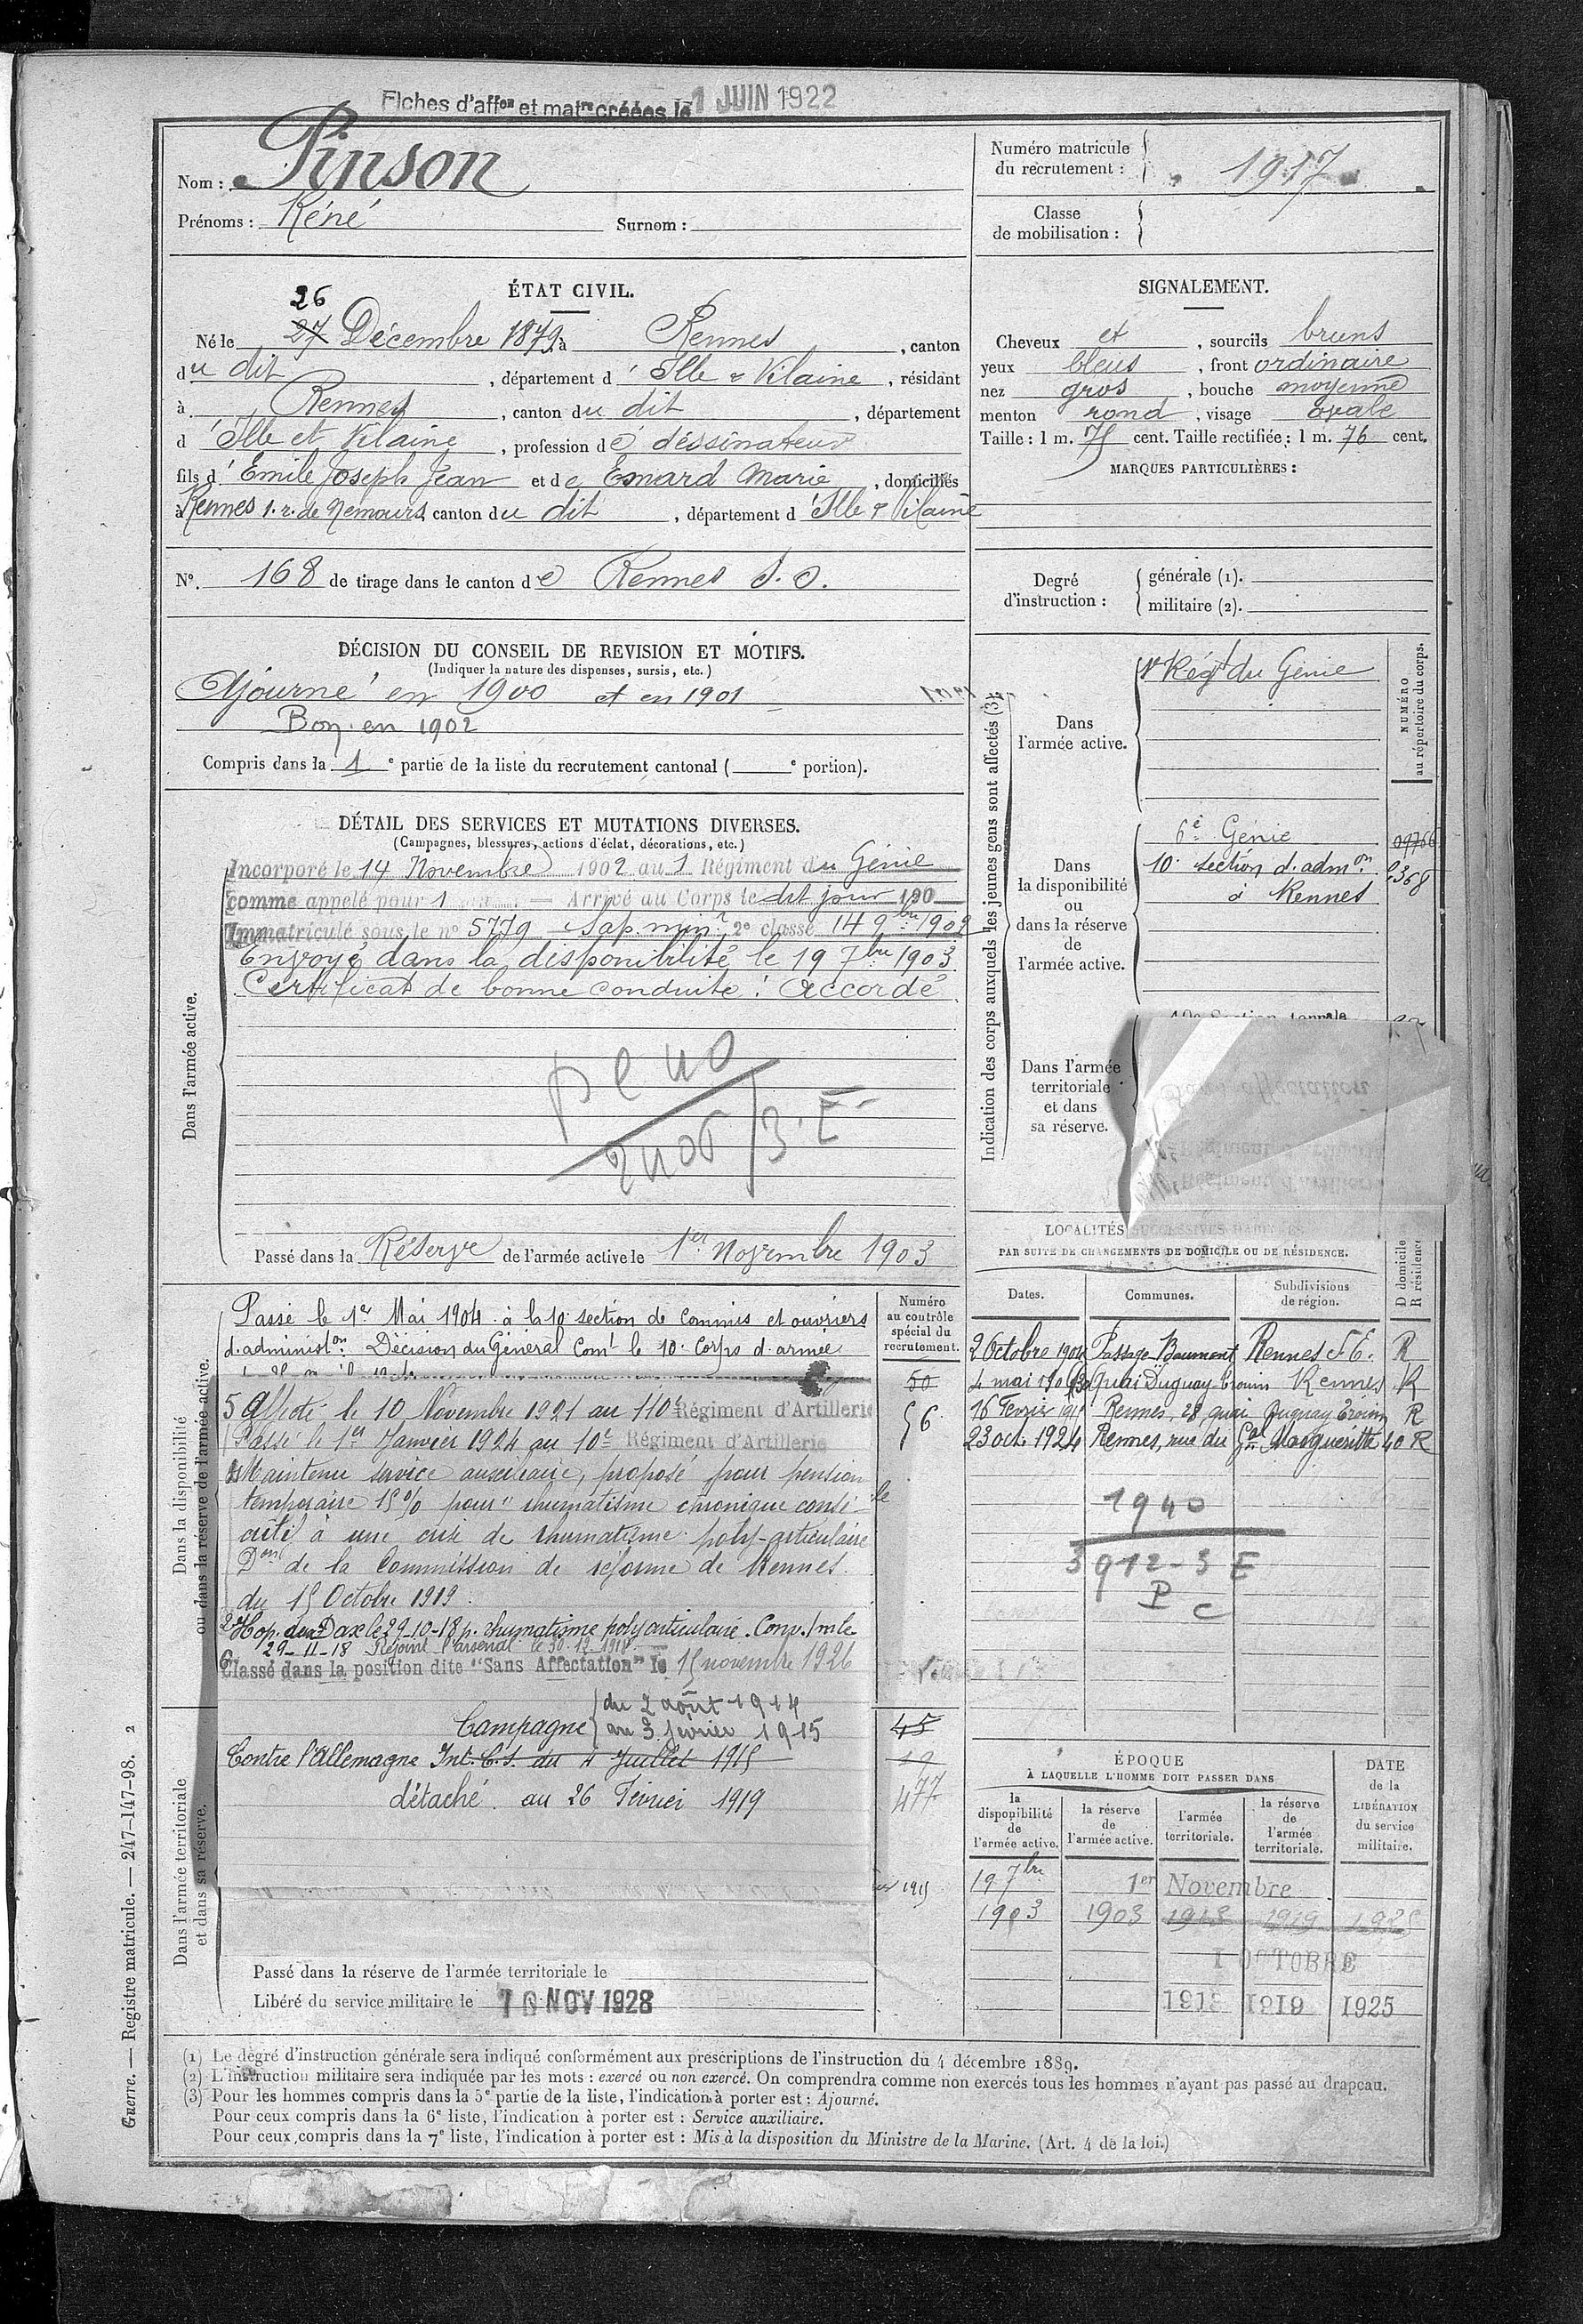 Fiches d'affon et matre créées le 1 JUIN 1922
Nom : Pinson
Prénoms : Réné Surnom :
Numéro matricule du recrutement : 1917
Classe de mobilisation :
ÉTAT CIVIL.
26
Né le 27 Décembre 1879, à Rennes, canton
du dit, département d'Ille & Vilaine, résidant
à Rennes, canton du dit, département
d'Ille et Vilaine, profession de dessinateur
fils d'Emile Joseph Jean et de Emard Marie, domiciliés
à Rennes 1. r. de Nemours, canton du dit, département d'Ille & Vilaine
N°. 168 de tirage dans le canton de Rennes S. O.
SIGNALEMENT.
Cheveux et, sourcils bruns
yeux bleus, front ordinaire
nez gros, bouche moyenne
menton rond, visage ovale
Taille : 1 m. 75 cent. Taille rectifiée : 1 m. 76 cent.
MARQUES PARTICULIÈRES :
Degré d'instruction : générale (1).
militaire (2).
DÉCISION DU CONSEIL DE REVISION ET MOTIFS.
(Indiquer la nature des dispenses, sursis, etc.)
Ajourné en 1900 et en 1901
Bon en 1902
Compris dans la 1e partie de la liste du recrutement cantonal ( e portion).
DÉTAIL DES SERVICES ET MUTATIONS DIVERSES.
(Campagnes, blessures, actions d'éclat, décorations, etc.)
Dans l'armée active.
Incorporé le 14 Novembre 1902 au 1 Régiment du Génie
comme appelé pour 1 — Arrivé au Corps le dit jour 190
Immatriculé sous le n° 5779 Sap. minr 2e classe 14 9bre 1902
Envoyé dans la disponibilité le 19 7bre 1903
Certificat de bonne conduite : Accordé
Passé dans la Réserve de l'armée active le 1er Novembre 1903
Indication des corps auxquels les jeunes gens sont affectés (3).
NUMÉRO au répertoire du corps.
Dans l'armée active.
1r Régt du Génie
Dans la disponibilité ou dans la réserve de l'armée active.
6e Génie
10e section d'admon 2368
à Rennes
Dans l'armée territoriale et dans sa réserve.
LOCALITÉS SUCCESSIVES
PAR SUITE DE CHANGEMENTS DE DOMICILE OU DE RÉSIDENCE.
Dates. Communes. Subdivisions de région. D domicile R résidence
2 Octobre 1904 Passage Baumont Rennes S. E. R
4 mai Quai Duguay-Trouin Rennes R
16 Février Rennes, 28 quai Duguay Trouin R
23 oct. 1924 Rennes, rue du Gal Margueritte 40 R
1940
3912-3 E
P
C
Dans la disponibilité ou dans la réserve de l'armée active.
Numéro au contrôle spécial du recrutement.
Passé le 1er Mai 1904 à la 10e section de Commis et ouvriers
d'administon. Décision du Général Comt le 10e Corps d'armée
50
56
5 Affecté le 10 Novembre 1921 au 110e Régiment d'Artillerie
Passé le 1er Janvier 1924 au 10e Régiment d'Artillerie
Maintenu service auxiliaire, proposé pour pension
temporaire 15% pour "rhumatisme chronique consé
cutif à une crise de rhumatisme poly-articulaire
Don de la Commission de réforme de Rennes
du 15 Octobre 1919
2° Hop. Dax le 29-10-18 p. rhumatisme polyarticulaire. Conv. 1 m le
29-11-18 Rejoint l'arsenal le 30.12.1918.
6° Classé dans la position dite "Sans Affectation" le 15 novembre 1926
Dans l'armée territoriale et dans sa réserve.
Campagne du 2 août 1914
au 3 février 1915
Contre l'Allemagne Int. C.S. au 4 Juillet 1915
détaché au 26 Février 1919
45
477
Passé dans la réserve de l'armée territoriale le
Libéré du service militaire le 10 NOV 1928
ÉPOQUE
À LAQUELLE L'HOMME DOIT PASSER DANS
la disponibilité de l'armée active.
la réserve de l'armée active.
l'armée territoriale.
la réserve de l'armée territoriale.
DATE de la LIBÉRATION du service militaire.
19 7bre 1er Novembre
1903 1903 1913 1919 1925
1 OCTOBRE
1913 1919 1925
(1) Le degré d'instruction générale sera indiqué conformément aux prescriptions de l'instruction du 4 décembre 1889.
(2) L'instruction militaire sera indiquée par les mots : exercé ou non exercé. On comprendra comme non exercés tous les hommes n'ayant pas passé au drapeau.
(3) Pour les hommes compris dans la 5e partie de la liste, l'indication à porter est : Ajourné.
Pour ceux compris dans la 6e liste, l'indication à porter est : Service auxiliaire.
Pour ceux compris dans la 7e liste, l'indication à porter est : Mis à la disposition du Ministre de la Marine. (Art. 4 de la loi.)
Guerre. — Registre matricule. — 247-147-98. 2